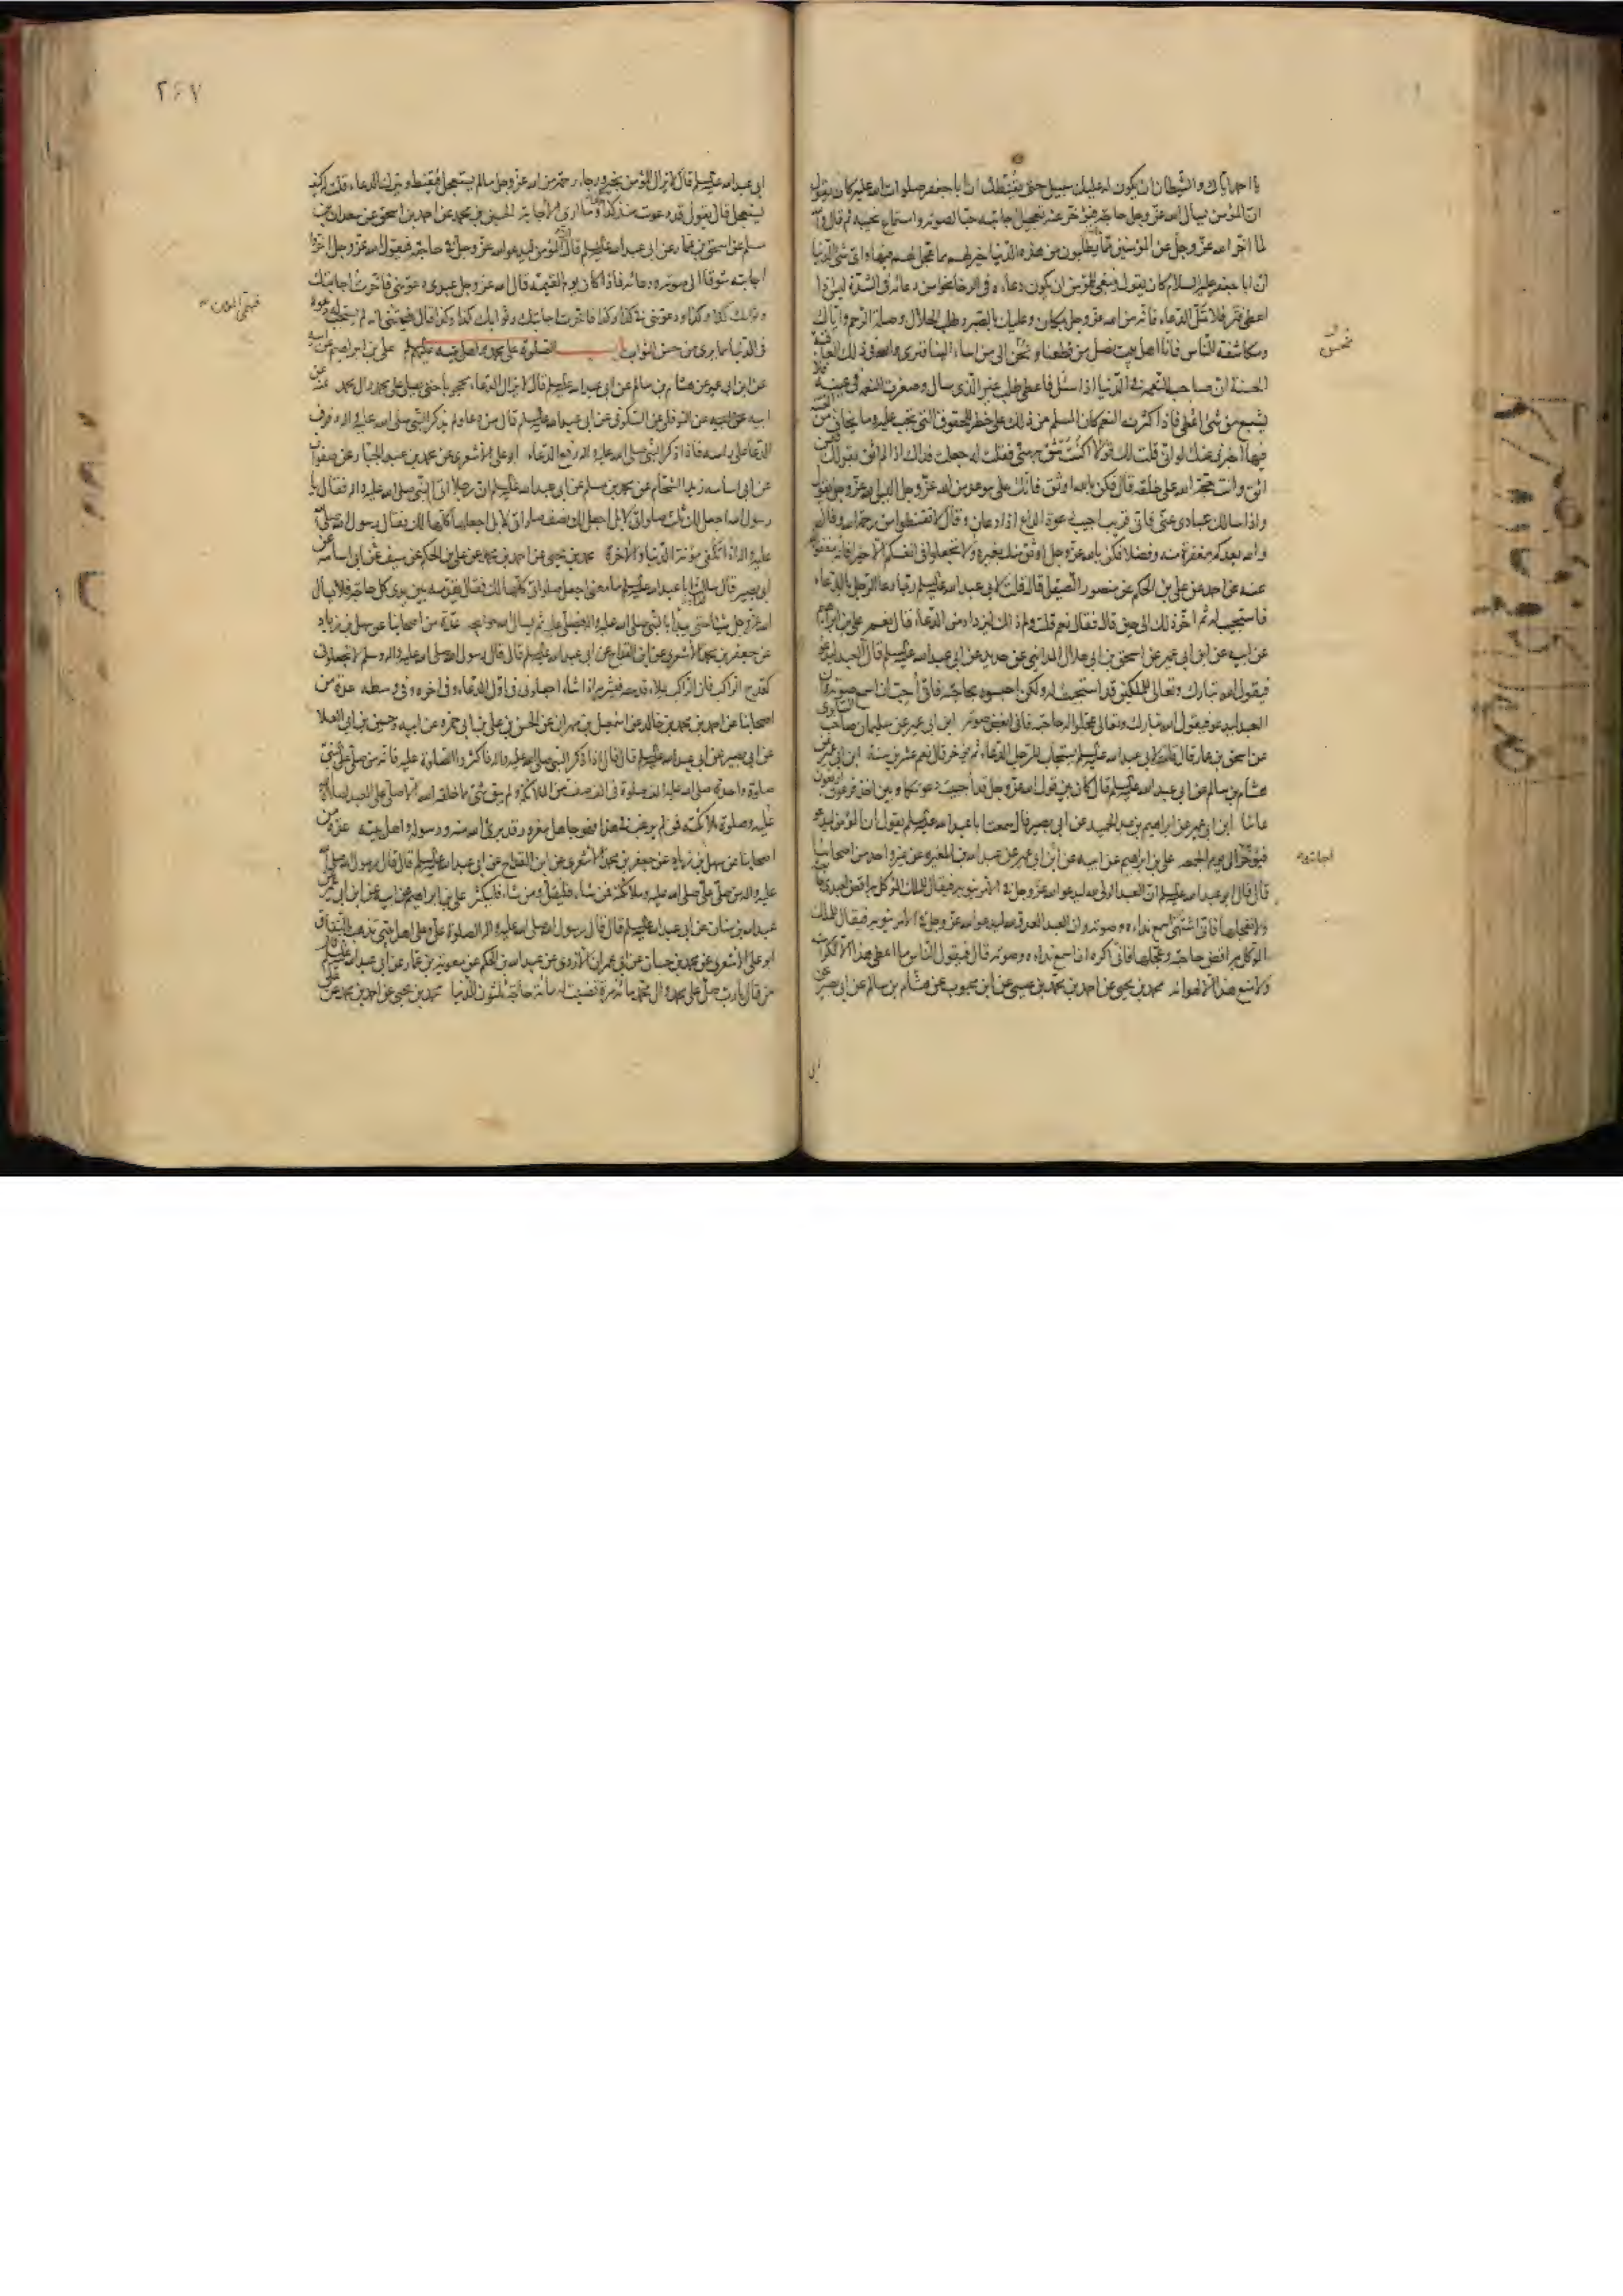 يا احمد اياك والشيطان ان يكون له عليك سبيل حتى يقنطك ان ابا جعفر صلوات الله عليه كان يقول
ان المؤمن يسأل الله عز وجل حاجة فيؤخر عنه تعجيل اجابته حبا لصوته واستماع نحيبه ثم قال والله
ما اخر الله عز وجل عن المؤمنين ما يطلبون من هذه الدنيا خير لهم مما عجل لهم فيها واى شئ الدنيا
ان ابا جعفر عليه السلام كان يقول ينبغى للمؤمن ان يكون دعاءه فى الرخاء نحوا من دعائه فى الشدة ليس اذا
اعطى فتر فلا تمل الدعاء فانه من الله عز وجل بمكان وعليك بالصبر وطلب الحلال وصلة الرحم واياك
ومكاشفة الناس فانا اهل بيت نصل من قطعنا ونحسن الى من اساء الينا فنرى والله فى ذلك العاقبة
الحسنة ان صاحب النعمة فى الدنيا اذا سئل فاعطى طلب غير الذى سال وصغرت النعمة فى عينه فلا
يشبع من شئ اعطى فاذا كثرت النعم كان المسلم من ذلك على خطر للحقوق التى تجب عليه وما يخاف من الفتنة
فيها اخبرنى عنك لو انى قلت لك قولا اكنت تثق به منى فقلت له جعلت فداك اذا لم اثق بقولك فبمن
اثق وانت حجة الله على خلقه قال فكن بالله اوثق فانك على موعد من الله عز وجل اليس الله عز وجل يقول
واذا سالك عبادى عنى فانى قريب اجيب دعوة الداع اذا دعان وقال لا تقنطوا من رحمة الله وقال
والله يعدكم مغفرة منه وفضلا فكن بالله عز وجل اوثق منك بغيره ولا تجعلوا فى انفسكم الا خيرا فانه مغفور
عنه عن احمد عن على بن الحكم عن منصور الصيقل قال قلت لابى عبد الله عليه السلم ربما دعا الرجل بالدعاء
فاستجيب له ثم اخر ذلك الى حين قال فقال نعم قلت ولم ذلك ليزداد من الدعاء قال نعم على بن ابراهيم
عن ابيه عن ابن ابى عمير عن اسحق بن ابى هلال المدائنى عن حديد عن ابى عبد الله عليه السلم قال ان العبد ليدعو
فيقول الله تبارك وتعالى للملكين قد استجبت له ولكن احبسوه بحاجته فانى احب ان اسمع صوته وان
العبد ليدعو فيقول الله تبارك وتعالى عجلوا له حاجته فانى ابغض صوته ابن ابى عمير عن سليمان صاحب السابرى
عن اسحق بن عمار قال قلت لابى عبد الله عليه السلم يستجاب للرجل الدعاء ثم يؤخر قال نعم عشرين سنة ابن ابى عمير عن
هشام بن سالم عن ابى عبد الله عليه السلم قال كان بين قول الله عز وجل قد اجيبت دعوتكما وبين اخذ فرعون اربعون
عاما ابن ابى عمير عن ابراهيم بن عبد الحميد عن ابى بصير قال سمعت ابا عبد الله عليه السلم يقول ان المؤمن ليدعو
فيؤخر الى يوم الجمعة على بن ابراهيم عن ابيه عن ابن ابى عمير عن عبد الله بن المغيرة عن غير واحد من اصحابنا
قال قال ابو عبد الله عليه السلم ان العبد الولى لله يدعو الله عز وجل فى الامر ينوبه فيقال للملك الموكل به اقض لعبدى حاجته
ولا تعجلها فانى اشتهى اسمع نداءه وصوته وان العبد العدو لله ليدعو الله عز وجل فى الامر ينوبه فيقال للملك
الموكل به اقض حاجته وعجلها فانى اكره ان اسمع نداءه وصوته قال فيقول الناس ما اعطى هذا الا لكرامته
ولا منع هذا الا لهوانه محمد بن يحيى عن احمد بن محمد بن عيسى عن ابن محبوب عن هشام بن سالم عن ابى بصير عن
نحسن
اجابته
ابى
٢٤٧
ابى عبد الله عليه السلم قال لا يزال المؤمن بخير ورجاء رحمة من الله عز وجل ما لم يستعجل فيقنط ويترك الدعاء قلت له كيف
يستعجل قال يقول قد دعوت منذ كذا وكذا وما ارى الاجابة الحسين بن محمد عن احمد بن اسحق عن سعدان بن
مسلم عن اسحق بن عمار عن ابى عبد الله عليه السلم قال ان المؤمن ليدعو الله عز وجل فى حاجته فيقول الله عز وجل اخروا
اجابته شوقا الى صوته ودعائه فاذا كان يوم القيمة قال الله عز وجل عبدى دعوتنى فاخرت اجابتك
وثوابك كذا وكذا ودعوتنى فى كذا وكذا فاخرت اجابتك وثوابك كذا وكذا قال فيتمنى انه لم يستجب له دعوة
فى الدنيا مما يرى من حسن الثواب باب الصلوة على محمد واهل بيته عليهم السلم على بن ابراهيم عن ابيه
عن ابن ابى عمير عن هشام بن سالم عن ابى عبد الله عليه السلم قال لا يزال الدعاء محجوبا حتى يصلى على محمد وال محمد عنه عن
ابيه عن النوفلى عن السكونى عن ابى عبد الله عليه السلم قال من دعا ولم يذكر النبى صلى الله عليه واله رفرف
الدعاء على راسه فاذا ذكر النبى صلى الله عليه واله رفع الدعاء ابو على الاشعرى عن محمد بن عبد الجبار عن صفوان
عن ابى اسامة زيد الشحام عن محمد بن مسلم عن ابى عبد الله عليه السلم ان رجلا اتى النبى صلى الله عليه واله فقال يا
رسول الله اجعل لك ثلث صلواتى لا بل اجعل لك نصف صلواتى لا بل اجعلها كلها لك فقال رسول الله صلى الله
عليه واله اذا تكفى مؤنة الدنيا والاخرة محمد بن يحيى عن احمد بن محمد عن على بن الحكم عن سيف عن ابى اسامة عن
ابى بصير قال سالت ابا عبد الله عليه السلم ما معنى اجعل صلواتى كلها لك فقال يقدمه بين يدى كل حاجة فلا يسأل
الله عز وجل شيئا حتى يبدأ بالنبى صلى الله عليه واله فيصلى عليه ثم يسال الله حوائجه عدة من اصحابنا عن سهل بن زياد
عن جعفر بن محمد الاشعرى عن ابن القداح عن ابى عبد الله عليه السلم قال قال رسول الله صلى الله عليه واله وسلم لا تجعلونى
كقدح الراكب فان الراكب يملاء قدحه فيشربه اذا شاء اجعلونى فى اول الدعاء وفى اخره وفى وسطه عدة من
اصحابنا عن احمد بن محمد بن خالد عن اسمعيل بن مهران عن الحسن بن على بن ابى حمزة عن ابيه وحسين بن ابى العلا
عن ابى بصير عن ابى عبد الله عليه السلم قال قال اذا ذكر النبى صلى الله عليه واله فاكثروا الصلوة عليه فانه من صلى على النبى
صلوة واحدة صلى الله عليه الف صلوة فى الف صف من الملائكة ولم يبق شئ مما خلقه الله الا صلى على العبد لصلوة الله
عليه وصلوة ملائكته فمن لم يرغب فى هذا فهو جاهل مغرور قد برئ الله منه ورسوله واهل بيته عدة من
اصحابنا عن سهل بن زياد عن جعفر بن محمد الاشعرى عن ابن القداح عن ابى عبد الله عليه السلم قال قال رسول الله صلى الله
عليه واله من صلى على صلى الله عليه وملائكته فمن شاء فليقل ومن شاء فليكثر على بن ابراهيم عن ابيه عن ابن ابى عمير عن
عبد الله بن سنان عن ابى عبد الله عليه السلم قال قال رسول الله صلى الله عليه واله الصلوة على وعلى اهل بيتى تذهب بالنفاق
ابو على الاشعرى عن محمد بن حسان عن ابى عمران الازدى عن عبد الله بن الحكم عن معوية بن عمار عن ابى عبد الله عليه السلم قال
من قال يا رب صل على محمد وال محمد مائة مرة قضيت له مائة حاجة ثلثون للدنيا محمد بن يحيى عن احمد بن محمد عن على